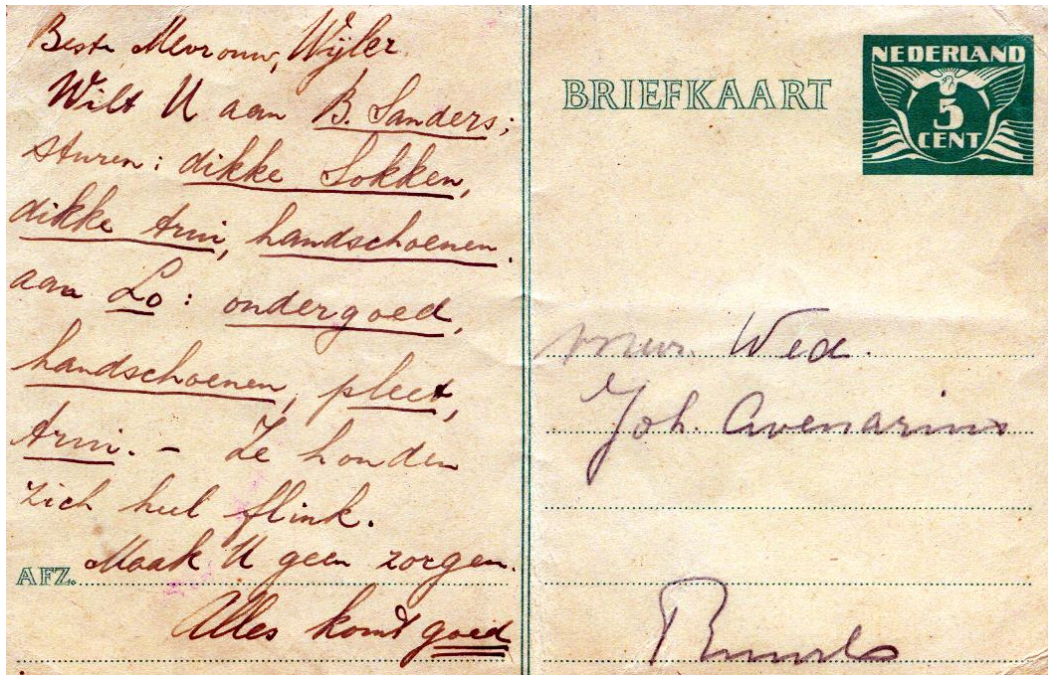 Beste Mevrouw, Wijler.
Wilt U aan B. Sanders;
sturen: dikke Sokken,
dikke trui, handschoenen.
aan Lo: ondergoed,
handschoenen, pleet,
trui. - Ze houden
zich heel flink.
AFZ. Maak U geen zorgen.
Alles komt goed
BRIEFKAART
NEDERLAND
5
CENT
Wed.
Joh. Avenarius
Ruurlo